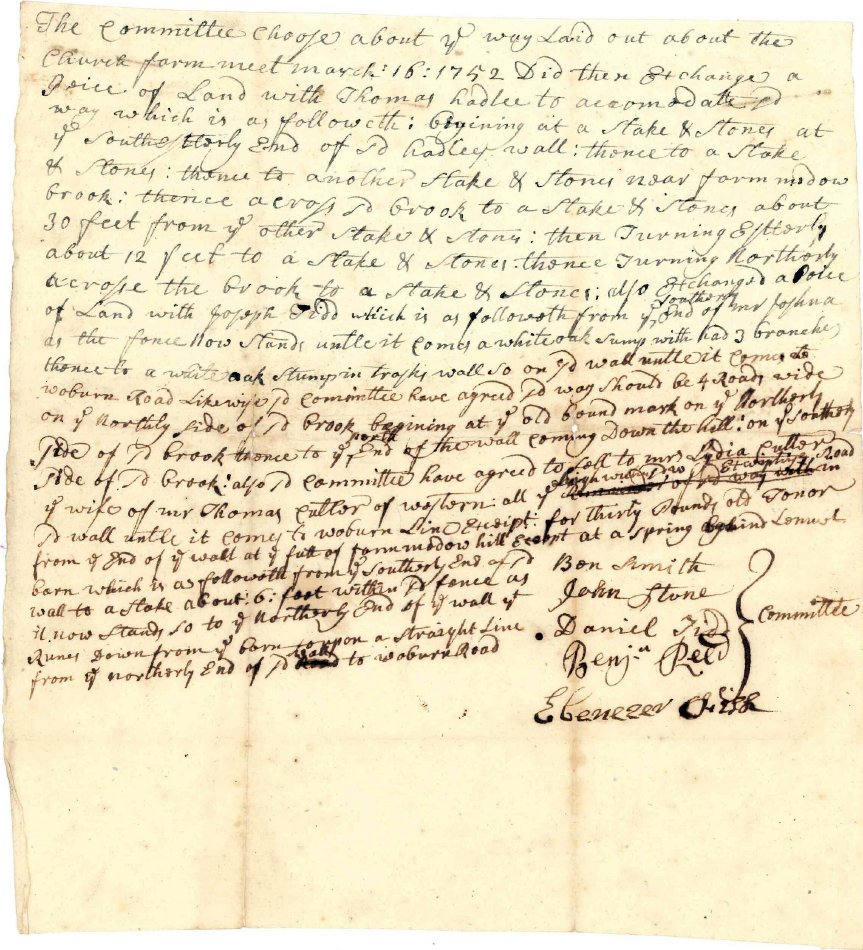 The Committee Choose about ye way Laid out about the
Church farm meet march: 16: 1752 Did then Exchange a
Peice of Land with Thomas hadlee to accomodate sd
way which is as followeth: begining at a Stake & Stones at
ye Southesterly End of sd hadley wall: thence to a Stake
& Stones: thence to another Stake & Stones near farm medow
brook: thence across sd brook to a Stake & Stones about
30 feet from ye other Stake & Stones: then Turning Esterly
about 12 feet to a Stake & Stones: thence Turning Northerly
across the brook to a Stake & Stones: also Exchanged a Peice
of Land with Joseph Fidd which is as followeth from ye Southerly End of mr Joshua
as the fence Now Stands untle it Comes a white oak Sump with had 3 branches
thence to a waite oak Stump in trasks wall so on sd wall untle it Comes to
woburn Road Likewise sd Committee have agreed sd way Should be 4 Roads wide
on ye Northly side of sd brook begining at ye old bound mark on ye Northerly
side of sd brook thence to ye north End of the wall Coming Down the hill: on ye Southerly
Side of sd brook: also sd Committee have agreed to Sell to mrs Lydia Cutler
ye wife of mr Thomas Cutler of western: all ye in
sd wall untle it Comes to woburn Line Except: for thirty Pounds old Tonor
from ye End of ye wall at ye futt of farm medow hill Except at a Spring behind Lemuel
barn which is as followeth from ye Southerly End of sd
wall to a Stake about: 6: feet within sd fence as
it now Stands so to ye Northerly End of ye wall ye
Runes Down from ye barn upon a Straight Line
from ye Northerly End of sd wall to woburn Road
Ben Smith
John Stone
Daniel
Benja Reed
Ebenezer
Committe